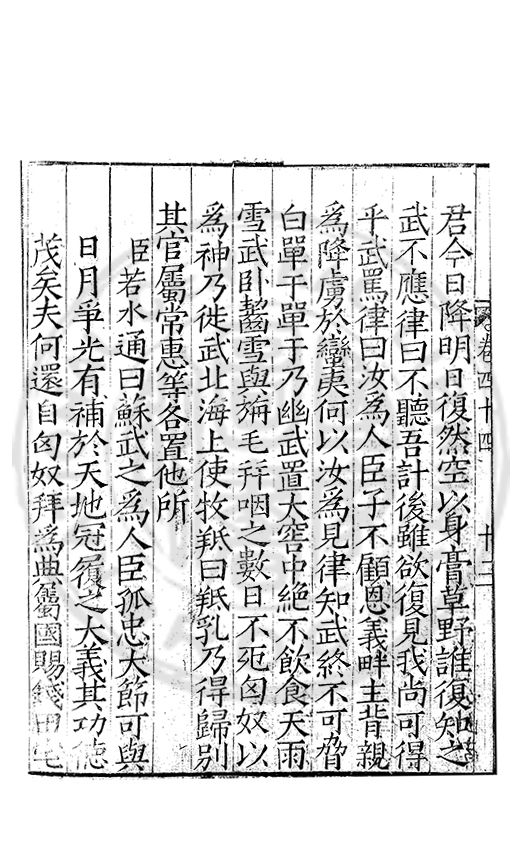 卷四十四　十三
君今日降明日復然空以身膏草野誰復知之
武不應律曰不聽吾計後雖欲復見我尚可得
乎武罵律曰汝為人臣子不顧恩義畔主背親
為降虜於蠻夷何以汝為見律知武終不可脅
白單于單于乃幽武置大窖中絕不飲食天雨
雪武臥齧雪與旃毛并咽之數日不死匈奴以
為神乃徙武北海上使牧羝曰羝乳乃得歸別
其官屬常惠等各置他所
臣若水通曰蘇武之為人臣孤忠大節可與
日月爭光有補於天地冠履之大義其功德
茂矣夫何還自匈奴拜為典屬國賜錢田宅